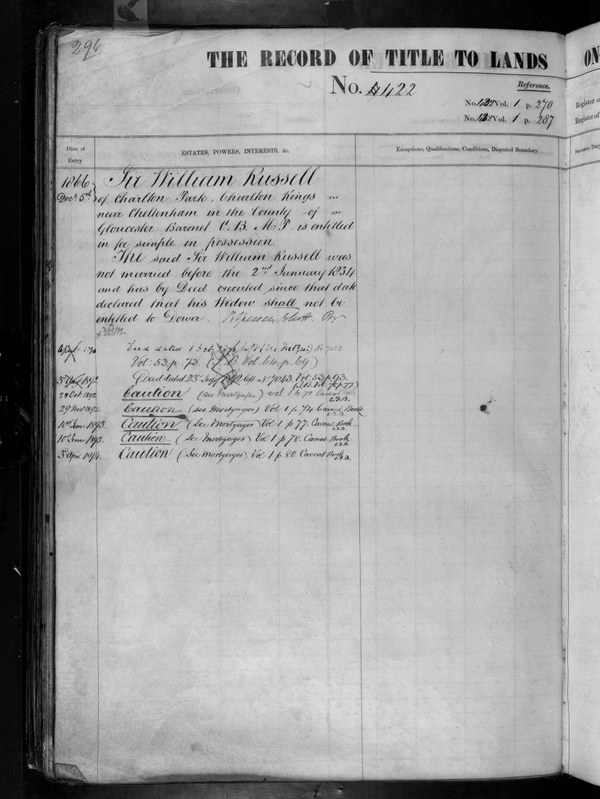 296
THE RECORD OF TITLE TO LANDS
ON
No. 422
Reference.
No. Vol. 1 p. 270
No. Vol. 1 p. 287
Register
Register of
Date of Entry
ESTATES, POWERS, INTERESTS, &c.
Exceptions, Qualifications, Conditions, Disputed Boundary
1866 Sir William Russell
Decr 5th of Charlton Park, Charlton Kings
near Cheltenham in the County of
Gloucester Baronet C. B. M. P. is entitled
in fee simple in possession
The said Sir William Russell was
not married before the 2nd January 1834
and has by Deed executed since that date
declared that his Widow shall not be
entitled to Dower.
Deed dated
Vol: 53. p. 73. Vol. 64. p. 69)
1892 Deed dated 25 1892 No 7043. Vol. 53. p. 63.
28 Oct. 1892 Caution (see Mortgages) vol. 1 p.
29 Nov 1892. Caution (see Mortgages) Vol 1 p 74 Caveat Book
10th June 1893. Caution (See Mortgages) Vol 1 p 77. Caveat Book
10th June 1893. Caution (See Mortgages) Vol 1 p 78. Caveat Book
5 April 1894. Caution (See Mortgages) Vol 1 p 80 Caveat Book